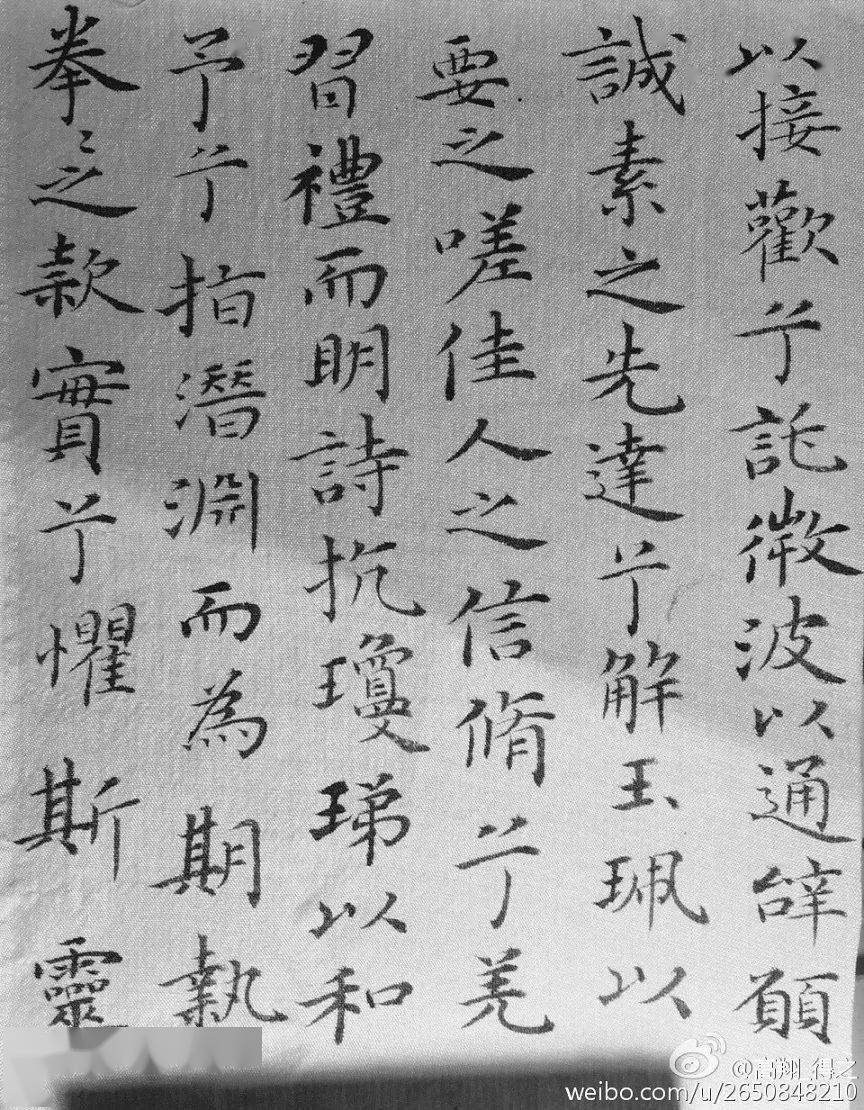 以接歡兮託微波以通辭願
誠素之先達兮解玉珮以
要之嗟佳人之信脩兮羌
習禮而明詩抗瓊珶以和
予兮指潛淵而為期執
拳〻之款實兮懼斯靈
@高翔_得之
weibo.com/u/2650848210